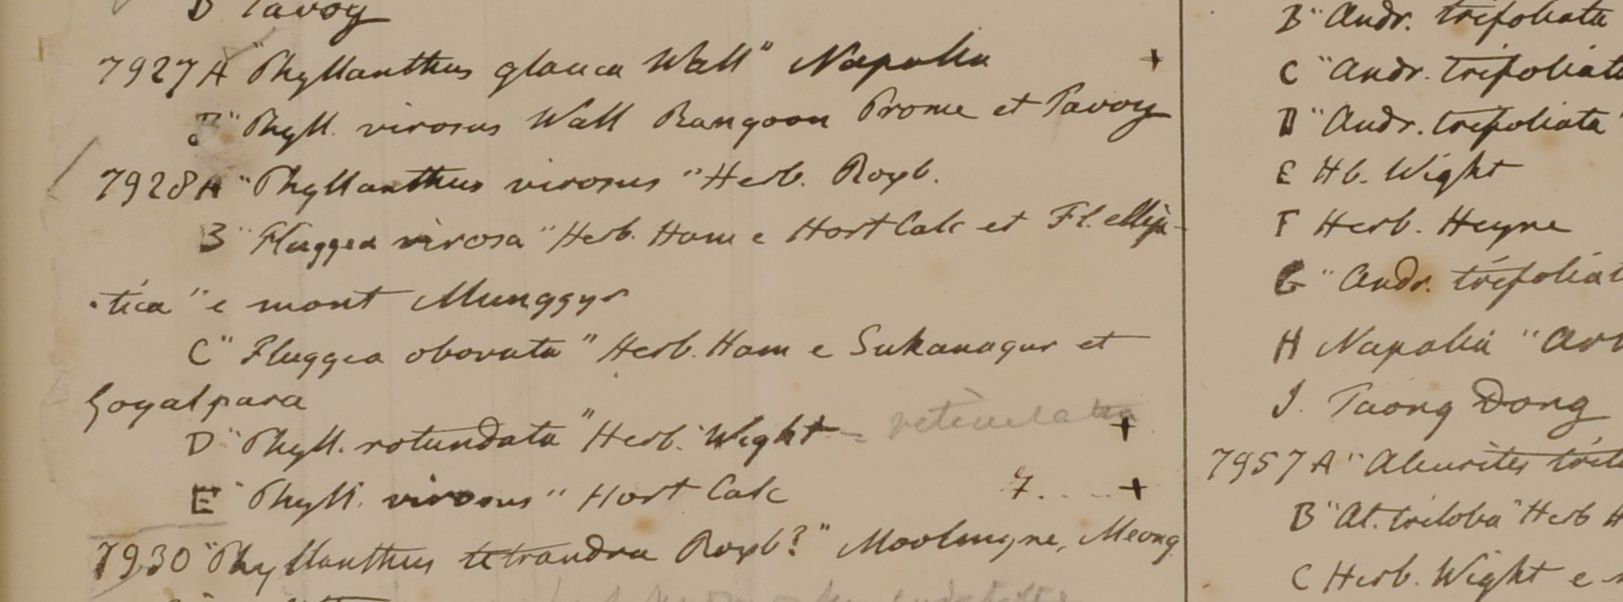 D Tavoy
7927 A "Phyllanthus glauca Wall" Napalia +
B "Phyll. virosus Wall Rangoon Prome et Tavoy
7928 A "Phyllanthus virosus" Herb. Roxb.
B "Fluggea virosa" Herb. Ham e Hort Calc et Fl. ellip-
-tica" e mont Munggyr
C "Fluggea obovata" Herb. Ham e Sukanagur et
Goyalpara
D "Phyll. rotundata" Herb. Wight = reticulata +
E "Phyll. virosus" Hort Calc 7. +
7930 "Phyllanthus tetrandra Roxb?" Moolmyne, Meong
B "Andr. trifoliata
C "Andr. trifoliata
D "Andr. trifoliata"
E Hb. Wight
F Herb. Heyne
G "Andr. trifoliat
H Napalia "And
I. Taong Dong
7957 A "Aleurites tril
B "Al. triloba" Herb H
C Herb. Wight e